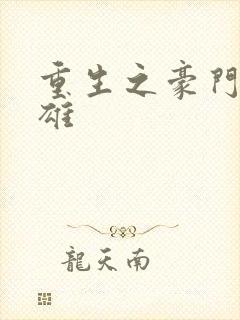 重生之豪門
雄
龍天南